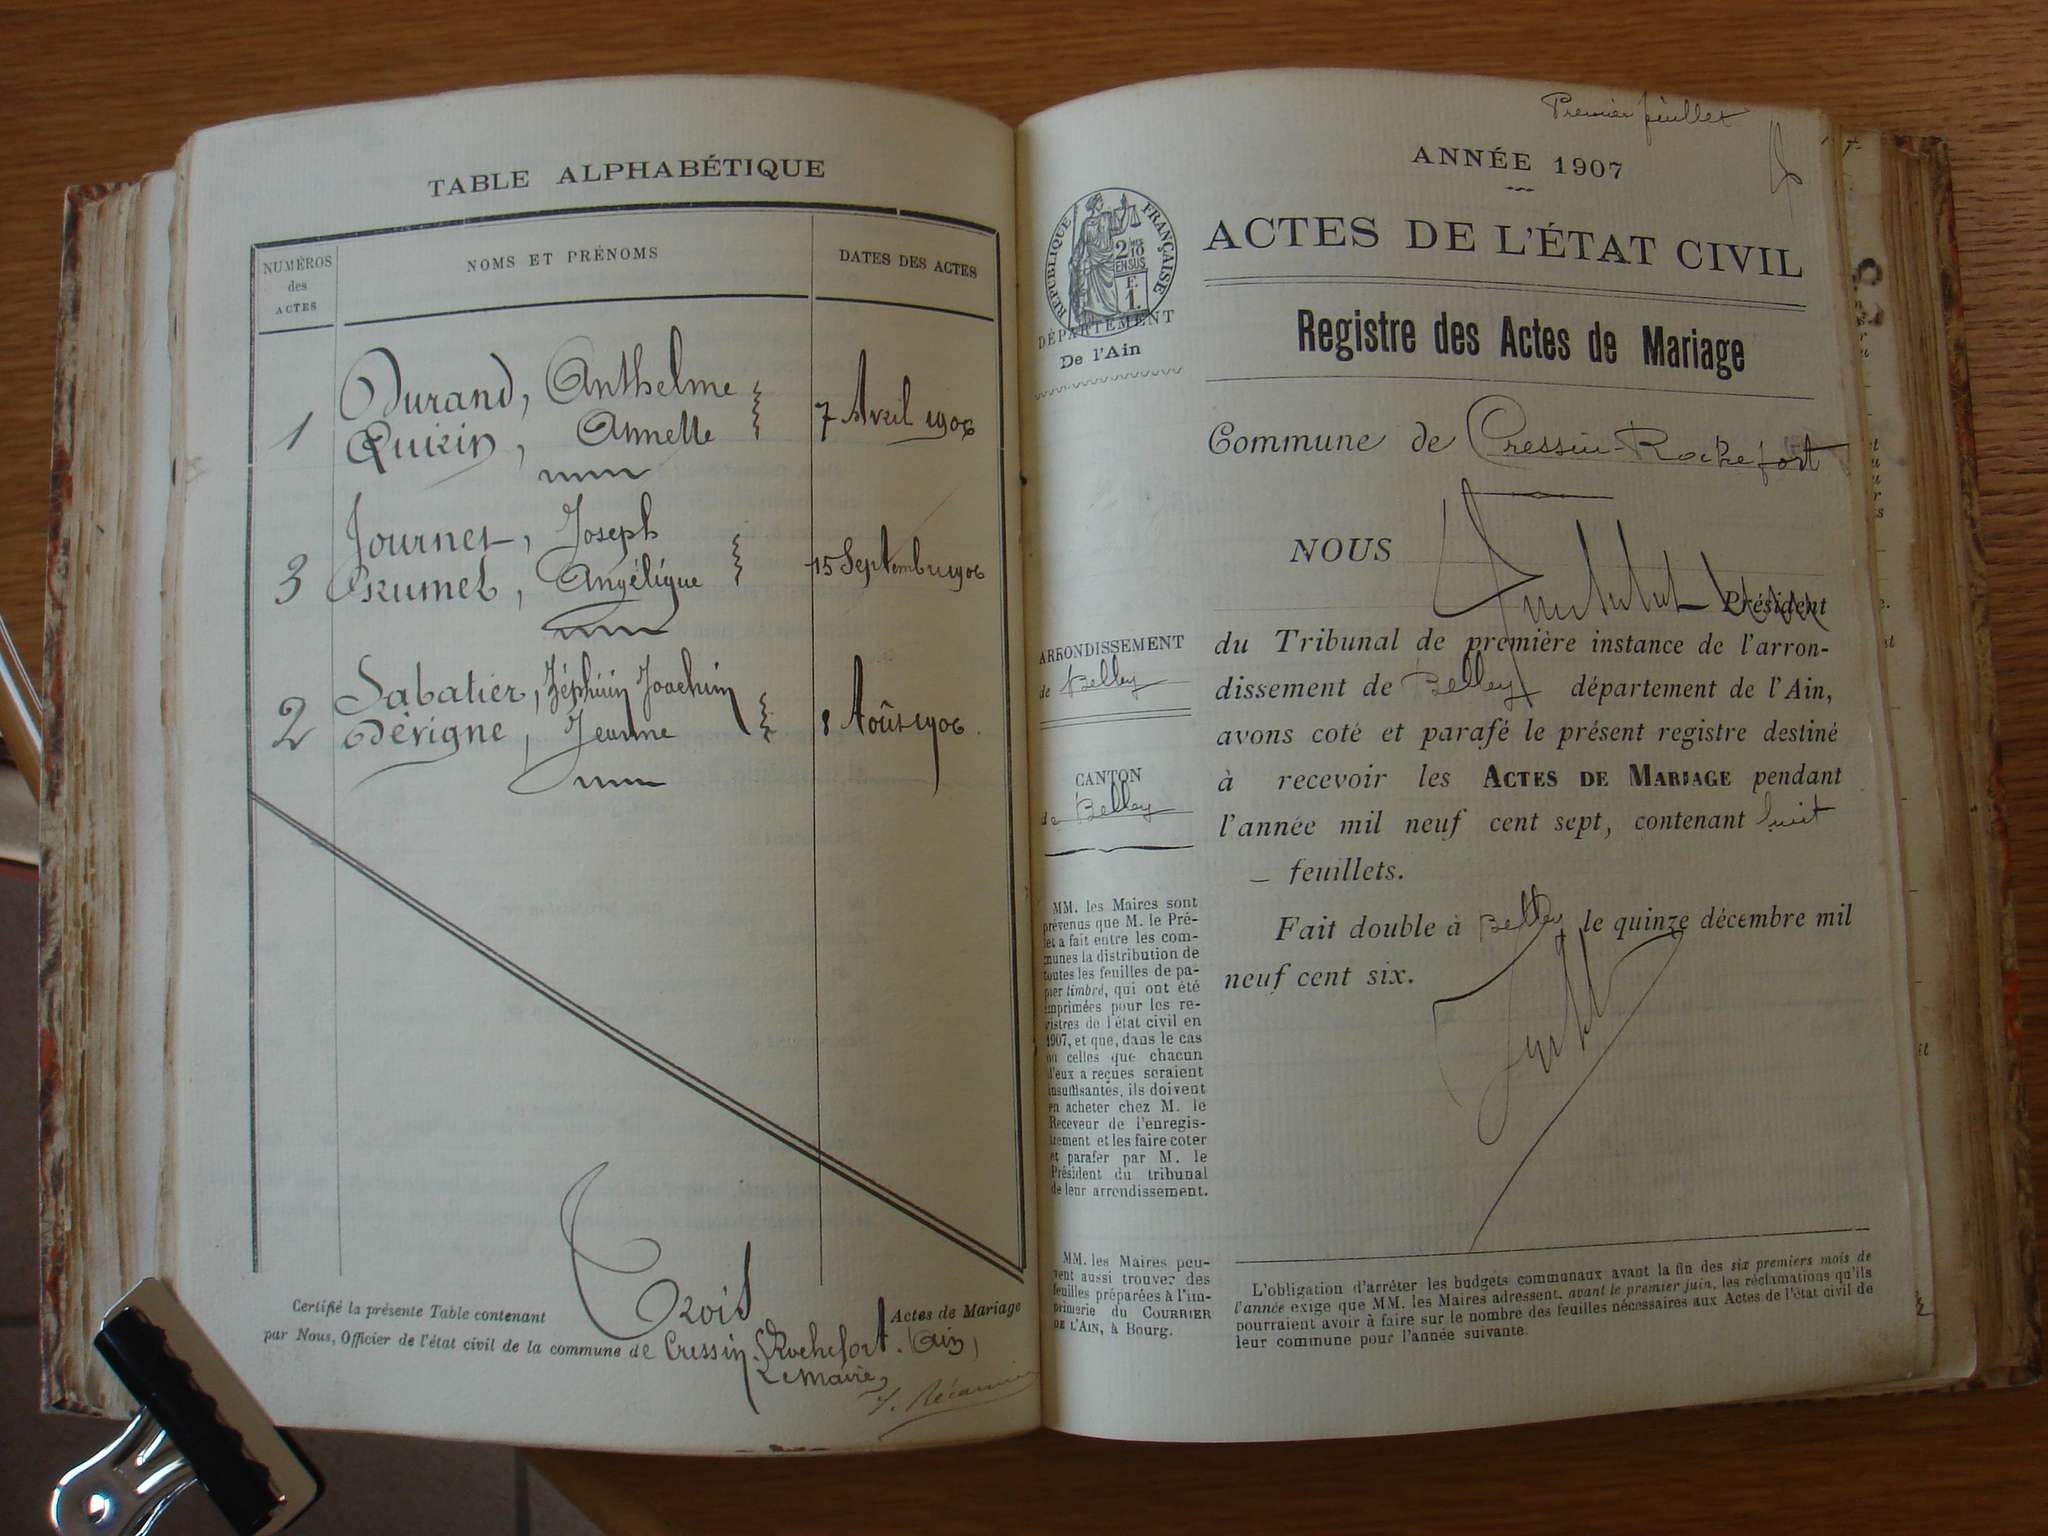 TABLE ALPHABÉTIQUE
NUMÉROS
des
ACTES
NOMS ET PRÉNOMS
DATES DES ACTES
1
Durand, Anthelme
Quirin, Annette
7 Avril 1906
3
Journet, Joseph
Brumet, Angélique
15 Septembre 1906
2
Sabatier, Zéphirin Joachim
Dérigne, Jeanne
8 Août 1906.
Certifié la présente Table contenant Trois Actes de Mariage
par Nous, Officier de l'état civil de la commune de Cressin-Rochefort. (Ain)
Le Maire,
Premier feuillet
ANNÉE 1907
RÉPUBLIQUE FRANÇAISE
2/10
EN SUS
F.
1.
DÉPARTEMENT
De l'Ain
ACTES DE L'ÉTAT CIVIL
Registre des Actes de Mariage
Commune de Cressin-Rochefort
NOUS
Président
du Tribunal de première instance de l'arron-
dissement de Belley département de l'Ain,
avons coté et parafé le présent registre destiné
à recevoir les ACTES DE MARIAGE pendant
l'année mil neuf cent sept, contenant huit
feuillets.
Fait double à Belley le quinze décembre mil
neuf cent six.
ARRONDISSEMENT
de Belley
CANTON
de Belley
MM. les Maires sont
prévenus que M. le Pré-
fet a fait entre les com-
munes la distribution de
toutes les feuilles de pa-
pier timbré, qui ont été
imprimées pour les re-
gistres de l'état civil en
1907, et que, dans le cas
où celles que chacun
d'eux a reçues seraient
insuffisantes, ils doivent
en acheter chez M. le
Receveur de l'enregis-
trement et les faire coter
et parafer par M. le
Président du tribunal
de leur arrondissement.
MM. les Maires peu-
vent aussi trouver des
feuilles préparées à l'im-
primerie du COURRIER
DE L'AIN, à Bourg.
L'obligation d'arrêter les budgets communaux avant la fin des six premiers mois de
l'année exige que MM. les Maires adressent, avant le premier juin, les réclamations qu'ils
pourraient avoir à faire sur le nombre des feuilles nécessaires aux Actes de l'état civil de
leur commune pour l'année suivante.